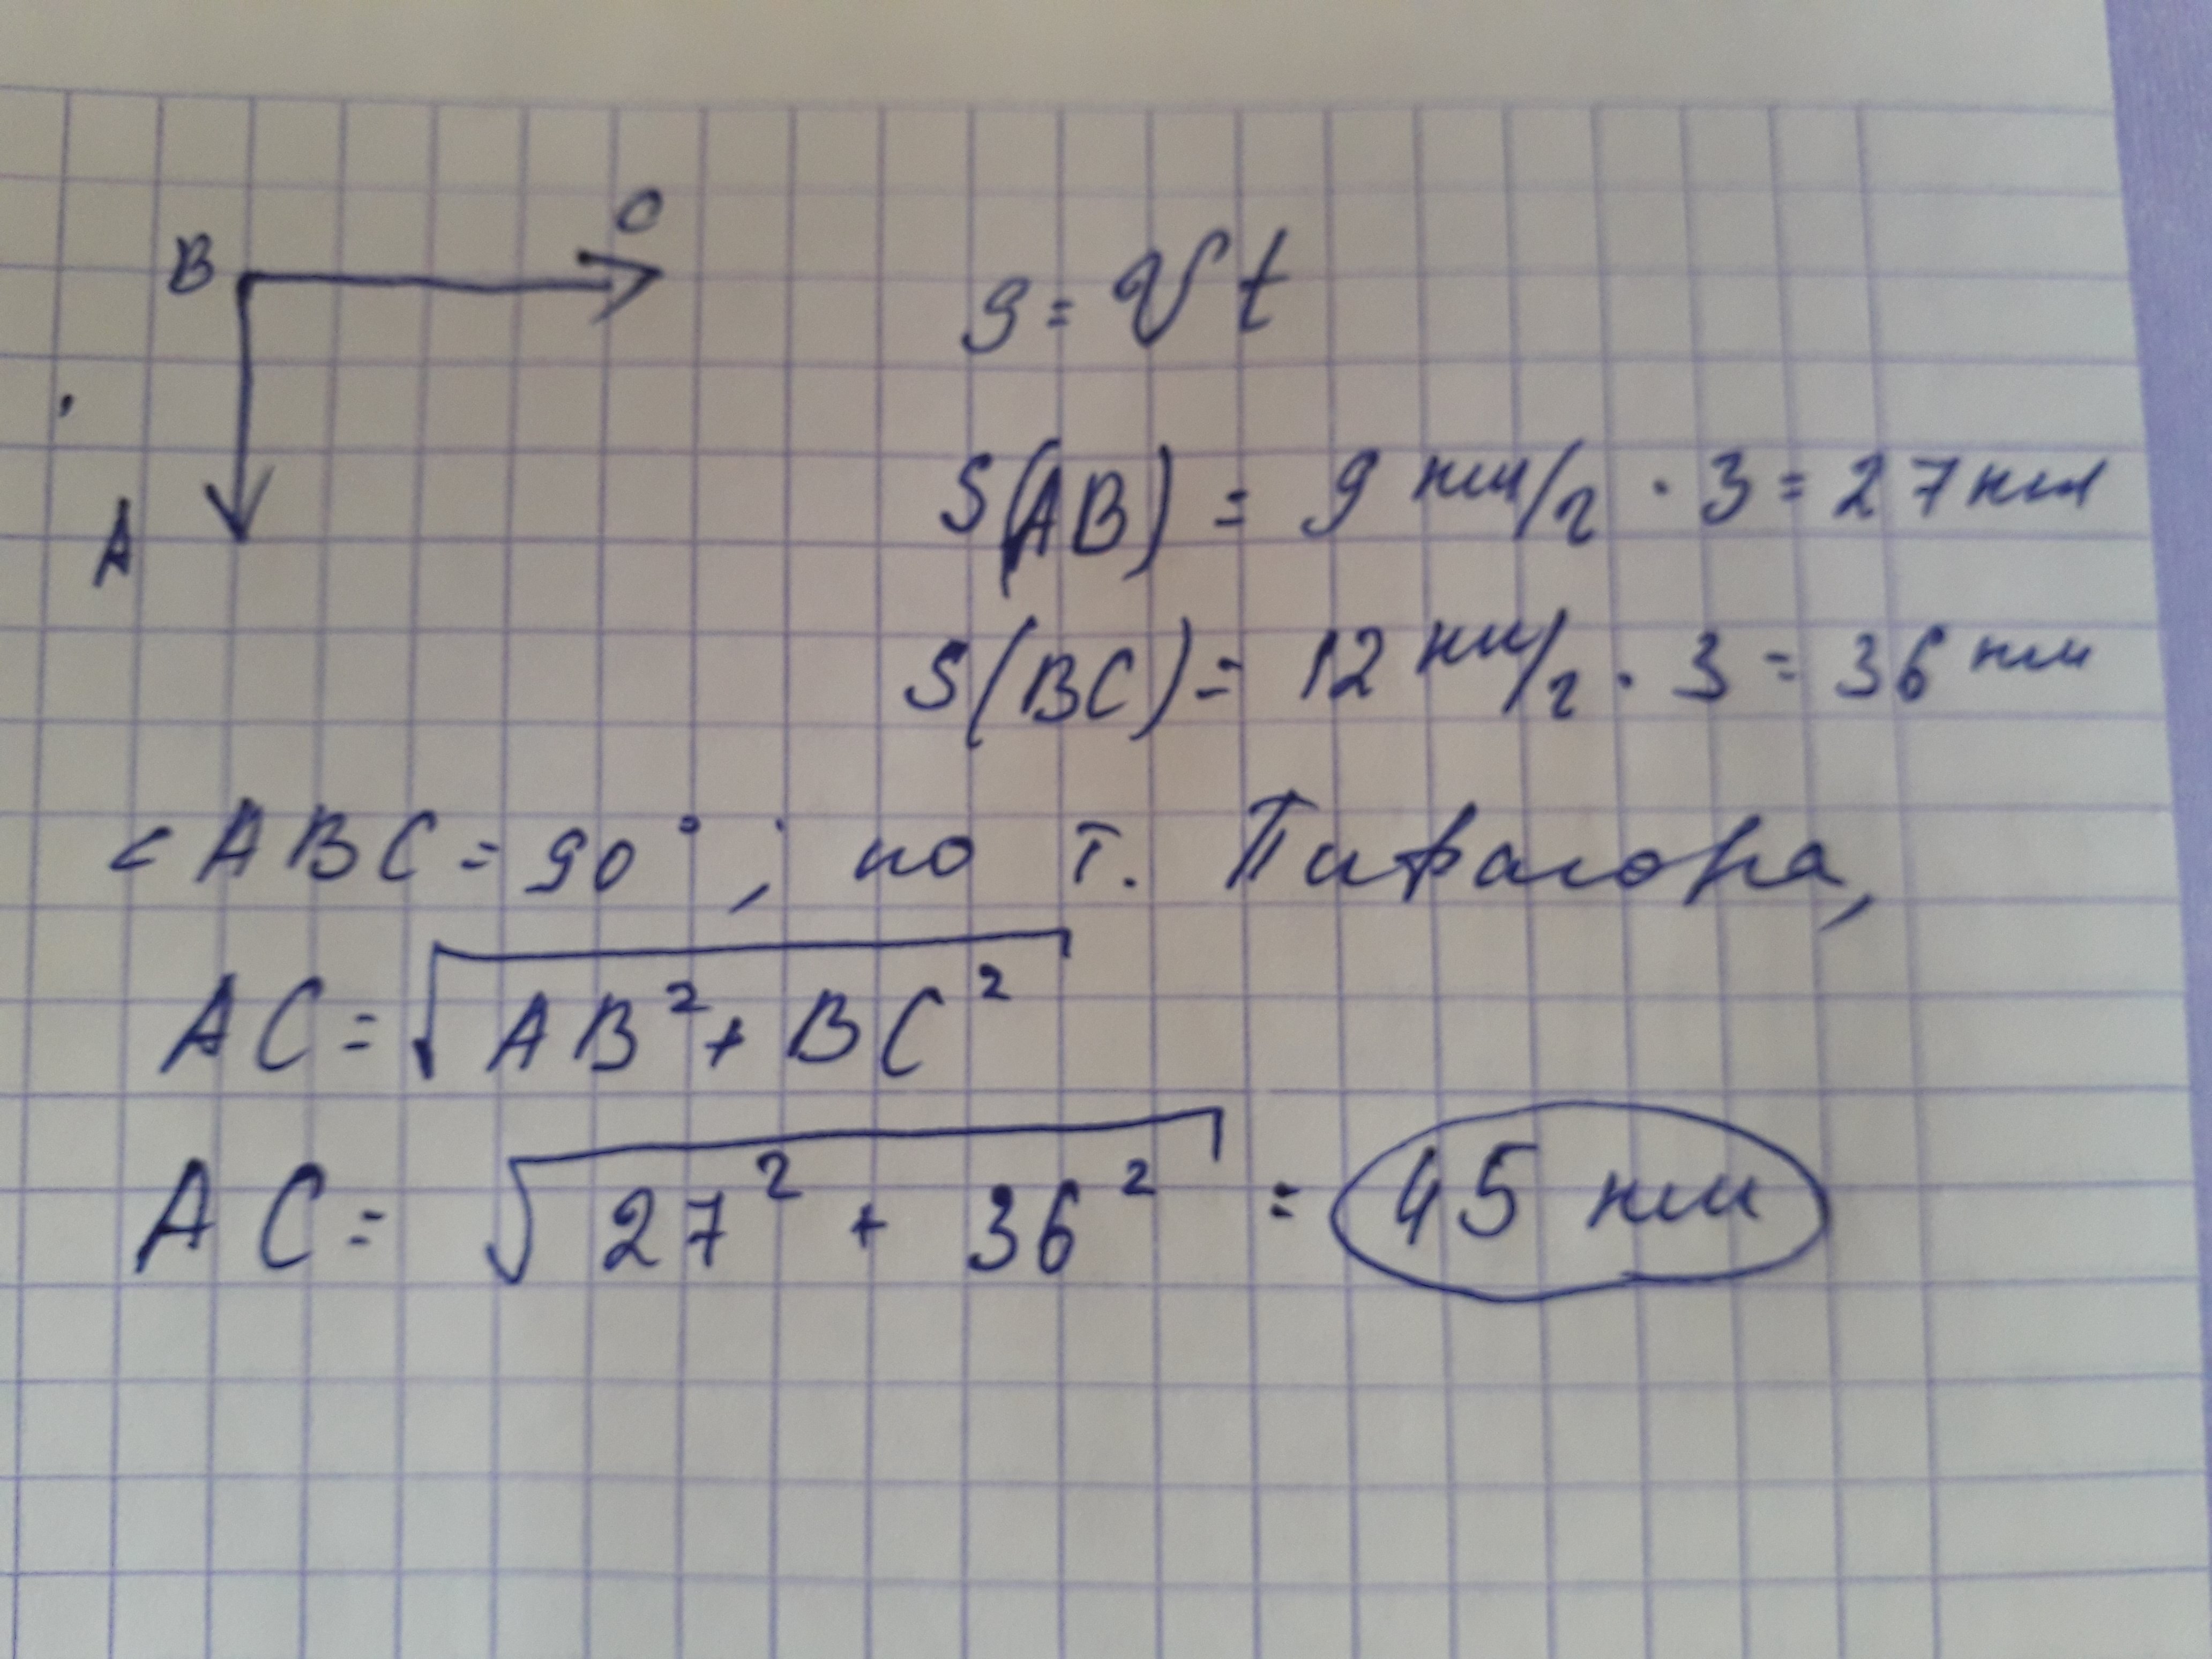 B
C
A
S = Vt
S(AB) = 9 км/г · 3 = 27 км
S(BC) = 12 км/г · 3 = 36 км
< ABC = 90°; по т. Пифагора,
AC = √AB² + BC²
AC = √27² + 36² = 45 км